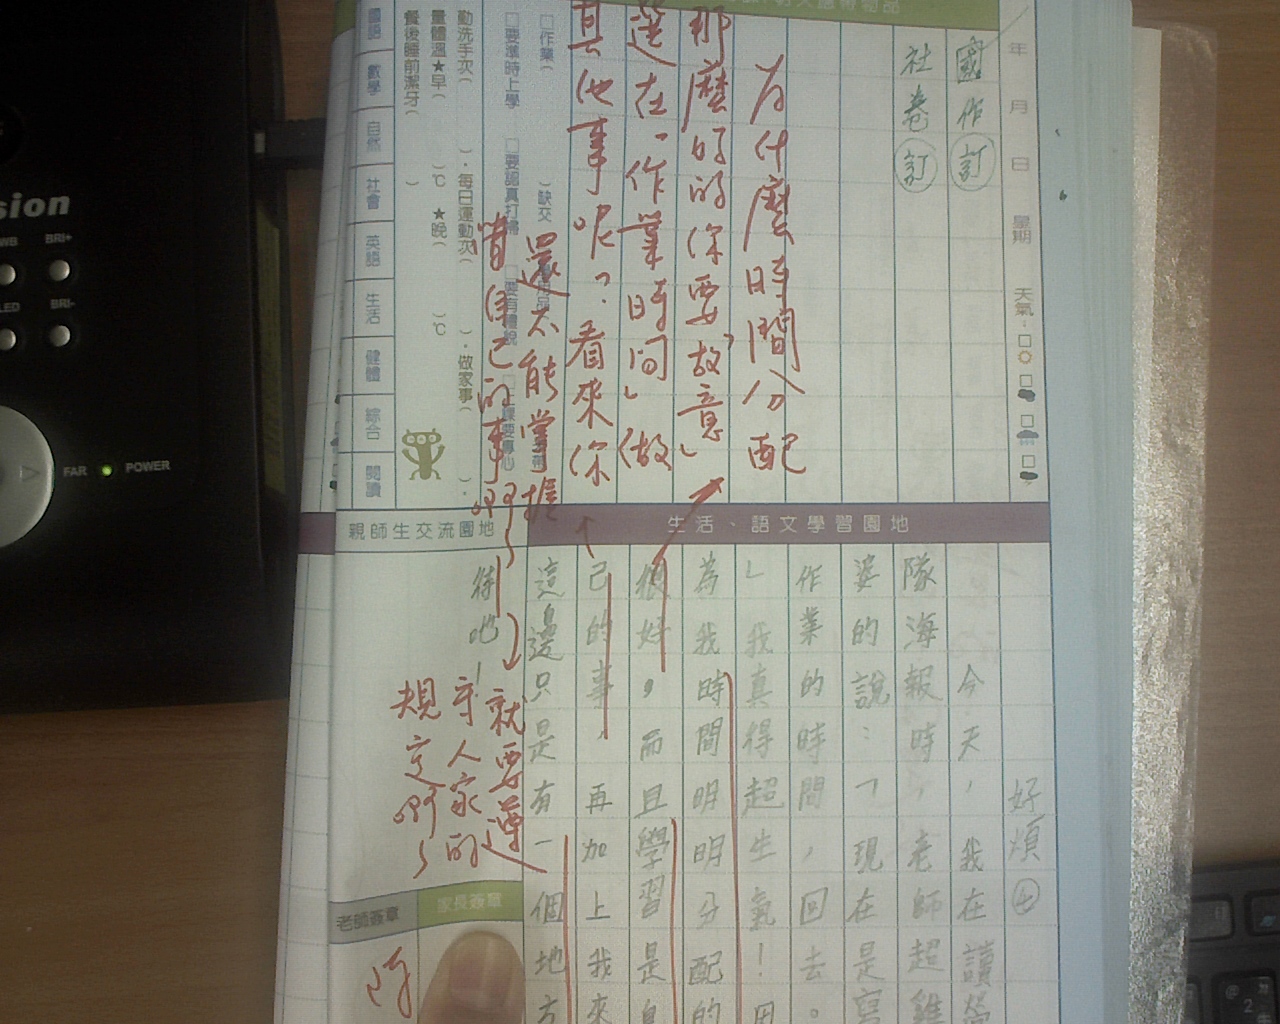 年 月 日 星期 天氣：
國作訂
社卷訂
為什麼時間分配
那麼好的你要「故意」
選在「作業時間」做
其他事呢？看來你
還不能掌握
自己的事啊～
就要遵
守人家的
規定啊～
□作業( )缺交
□要準時上學 □要認真打掃 □要有體貌 □上課要專心
勤洗手次( )．每日運動次( )．做家事( )．
量體溫★早( )℃ ★晚( )℃
餐後睡前潔牙( )
國語 數學 自然 社會 英語 生活 健體 綜合 閱讀
生活、語文學習園地
親師生交流園地
好煩㊉
今天，我在讀
隊海報時，老師超雞
婆的說：「現在是寫
作業的時間，回去。
」我真得超生氣！因
為我時間明明分配的
很好，而且學習是自
己的事，再加上我來
這邊只是有一個地方
待吧！
老師簽章
家長簽章
FAR POWER
BRI+
BRI-
sion